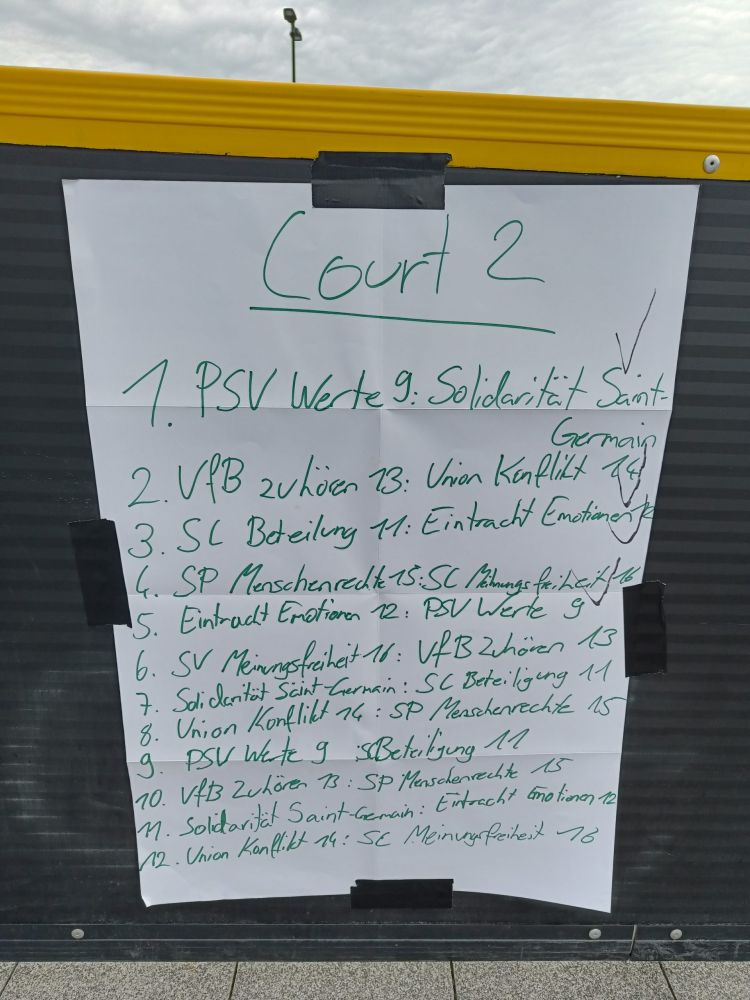 Court 2
1. PSV Werte 9: Solidarität Saint-
Germain
2. VfB zuhören 13: Union Konflikt 14
3. SC Beteilung 11: Eintracht Emotionen 12
4. SP Menschenrechte 15: SC Meinungsfreiheit 16
5. Eintracht Emotionen 12: PSV Werte 9
6. SV Meinungsfreiheit 16: VfB Zuhören 13
7. Solidarität Saint-Germain: SC Beteiligung 11
8. Union Konflikt 14: SP Menschenrechte 15
9. PSV Werte 9 :SCBeteiligung 11
10. VfB Zuhören 13: SP Menschenrechte 15
11. Solidarität Saint-Germain: Eintracht Emotionen 12
12. Union Konflikt 14: SC Meinungsfreiheit 16